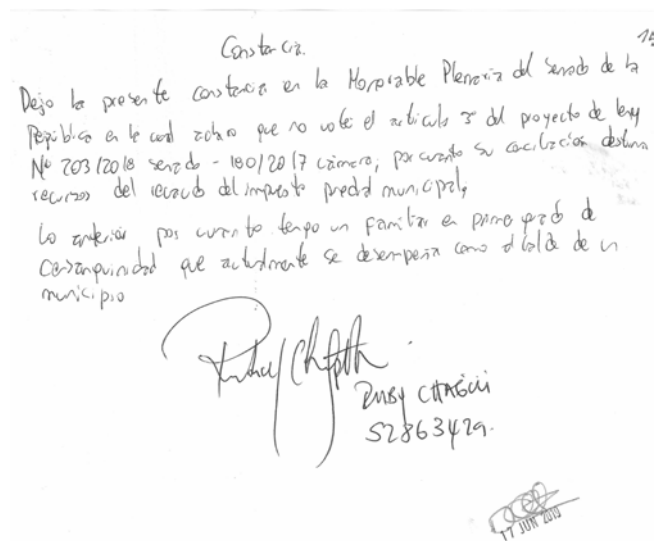 15
Constancia.
Dejo la presente constancia en la Honorable Plenaria del Senado de la
República en la cual aclaro que no voté el articulo 3º del proyecto de ley
Nº 203/2018 senado - 180/2017 cámara; por cuanto su conciliación destina
recursos del recaudo del impuesto predial municipal,
Lo anterior por cuanto tengo un familiar en primer grado de
Consanguinidad que actualmente se desempeña como alcalde de un
municipio
Ruby CHAGÜI
52863429.
17 JUN 2019